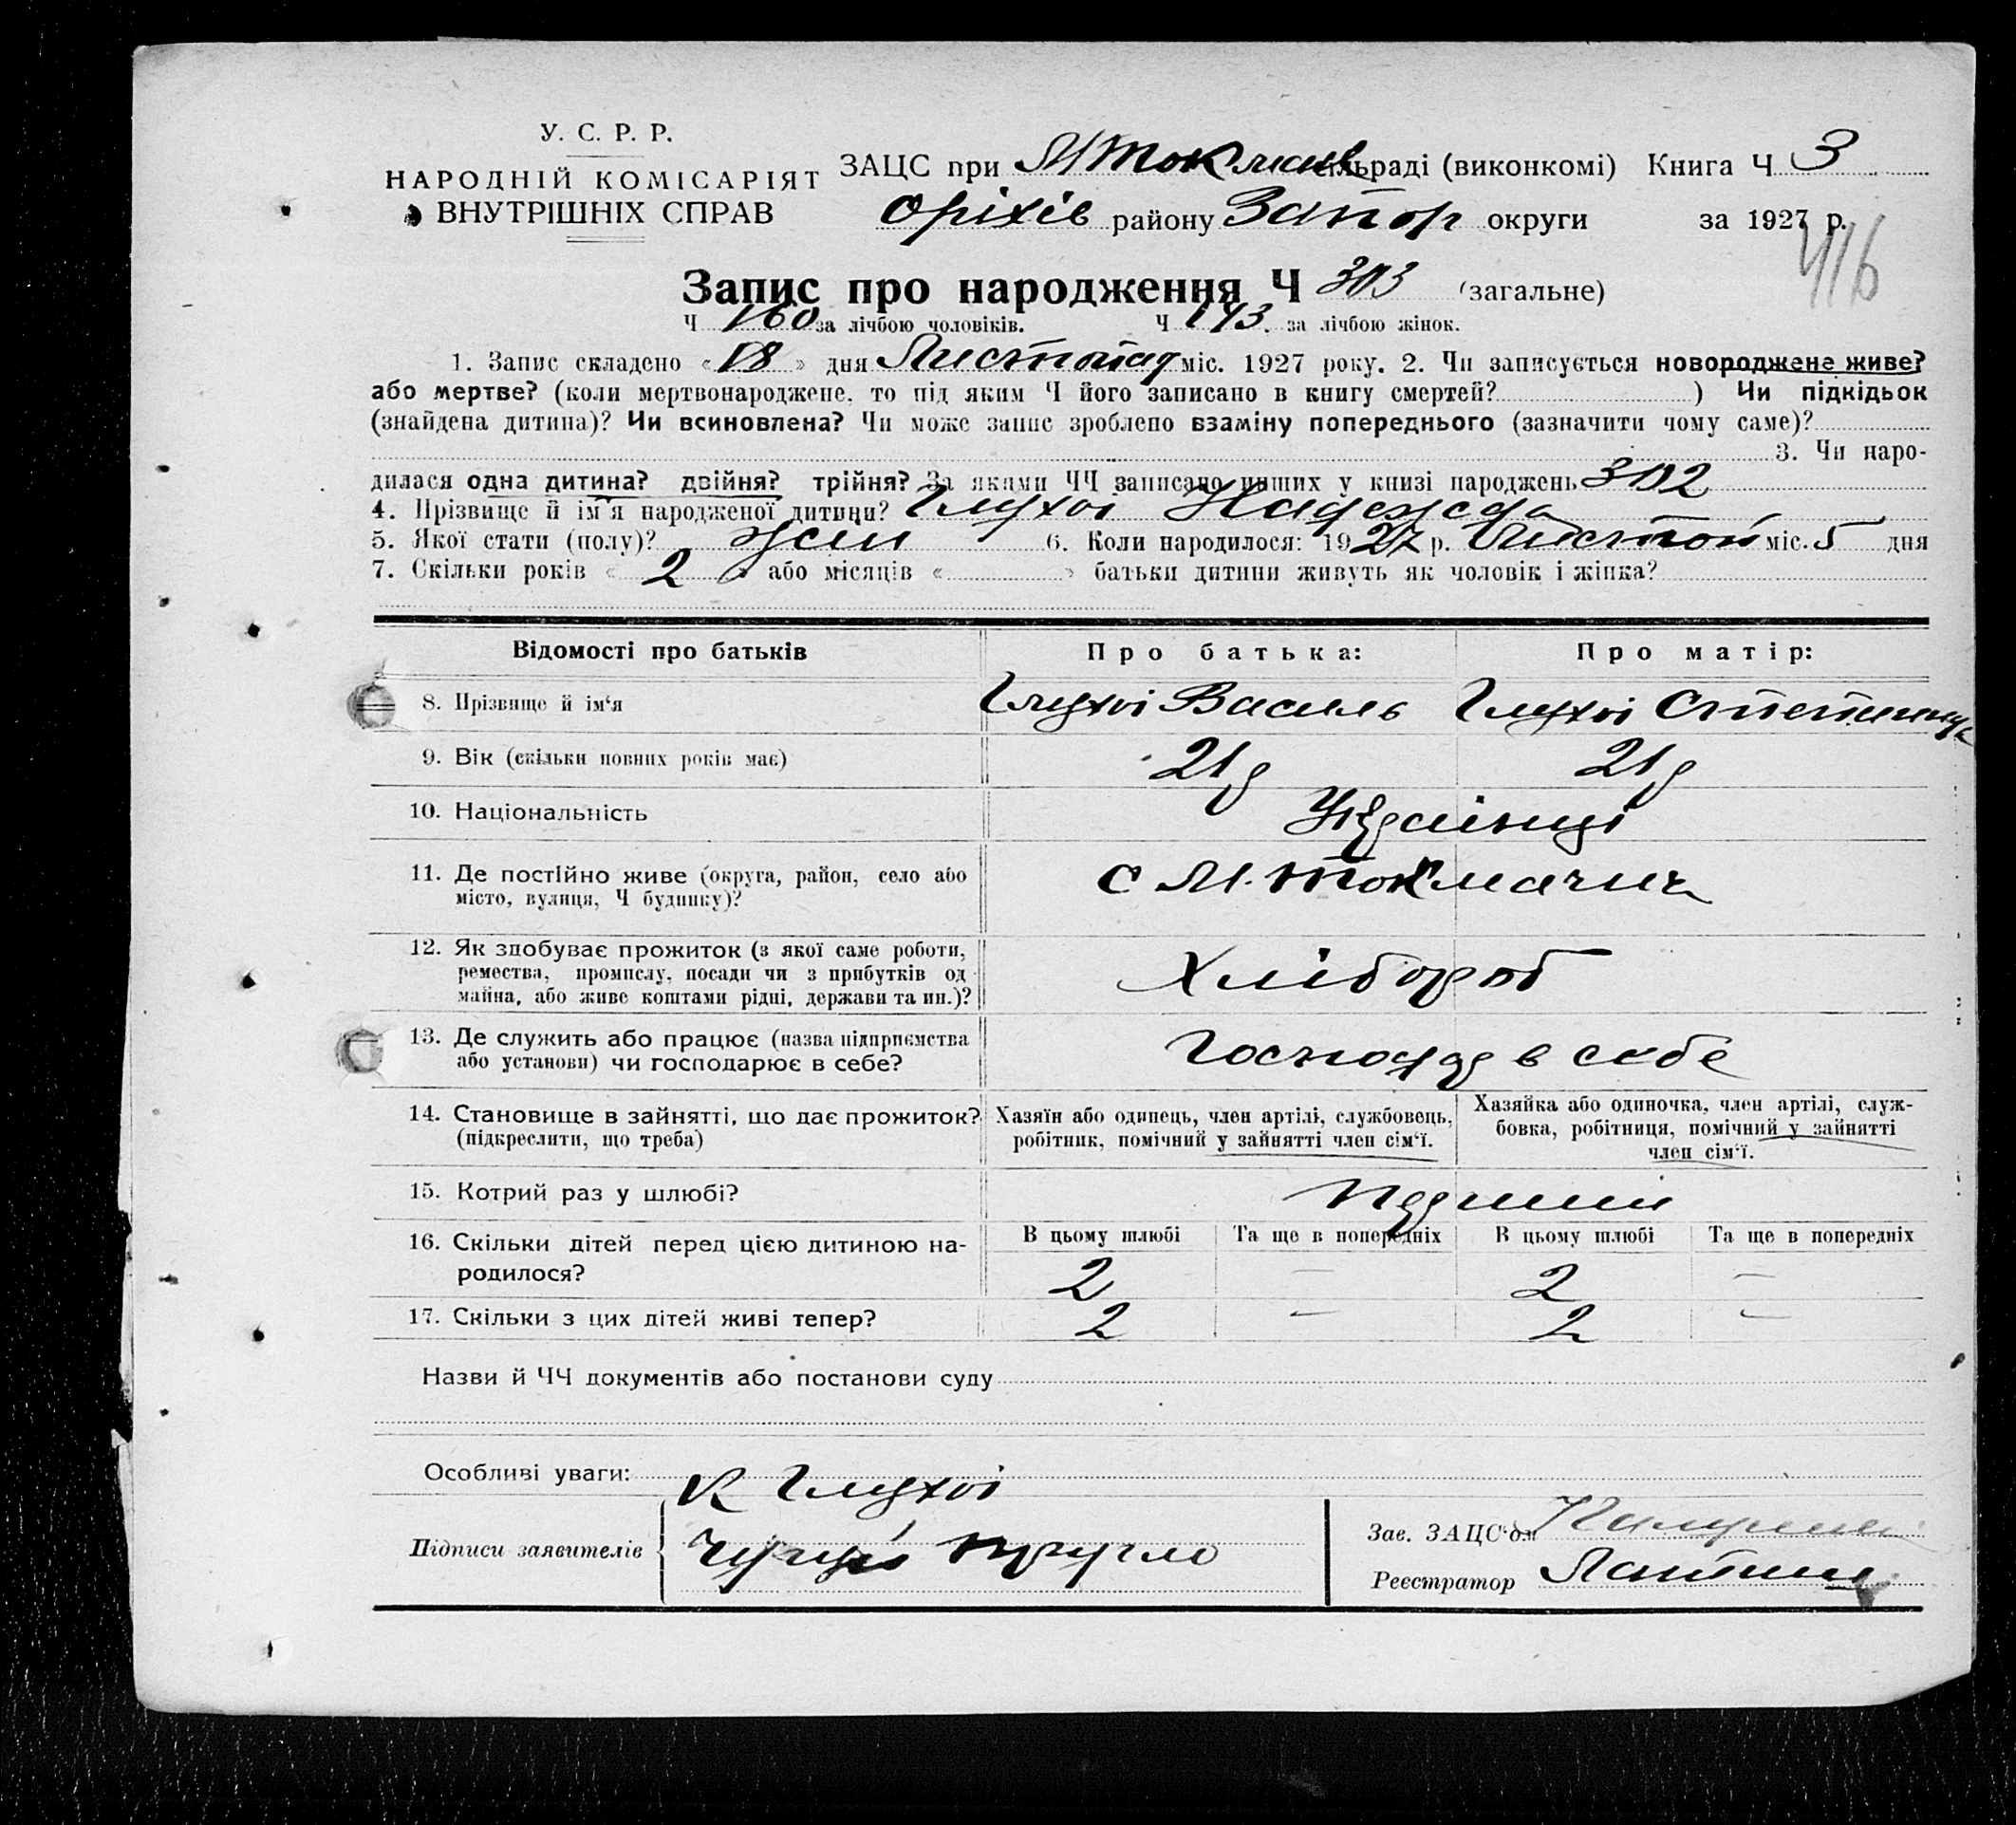 У. С. Р. Р.
НАРОДНІЙ КОМІСАРІЯТ
ВНУТРІШНІХ СПРАВ
ЗАЦС при М Токмач сільраді (виконкомі) Книга Ч 3
Оріхів району Запор округи за 1927 р.
416
Запис про народження Ч 303 (загальне)
Ч 160 за лічбою чоловіків. Ч 143. за лічбою жінок.
1. Запис складено « 18 » дня Листопад міс. 1927 року. 2. Чи записується новороджене живе?
або мертве? (коли мертвонароджене, то під яким Ч його записано в книгу смертей? ) Чи підкідьок
(знайдена дитина)? Чи всиновлена? Чи може запис зроблено взаміну попереднього (зазначити чому саме)?
3. Чи наро-
дилася одна дитина? двійня? трійня? За якими ЧЧ записано инших у книзі народжень 302
4. Прізвище й ім'я народженої дитини? Глухоі Надежда
5. Якої стати (полу)? жен 6. Коли народилося: 1927 р. Листоп міс. 5 дня
7. Скільки років « 2 » або місяців « » батьки дитини живуть як чоловік і жінка?
Відомості про батьків Про батька: Про матір:
8. Прізвище й ім'я Глухоі Василь Глухоі
9. Вік (скільки повних років має) 21 р 21 р
10. Національність Українці
11. Де постійно живе (округа, район, село або
місто, вулиця, Ч будинку)? с М. Токмачик
12. Як здобуває прожиток (з якої саме роботи,
ремества, промислу, посади чи з прибутків од
майна, або живе коштами рідні, держави та ин.)? Хлібороб
13. Де служить або працює (назва підприємства
або установи) чи господарює в себе? Господар в себе
14. Становище в зайнятті, що дає прожиток?
(підкреслити, що треба)
Хазяїн або одинець, член артілі, службовець,
робітник, помічний у зайнятті член сім'ї.
Хазяйка або одиночка, член артілі, служ-
бовка, робітниця, помічний у зайнятті
член сім'ї.
15. Котрий раз у шлюбі? Перший
16. Скільки дітей перед цією дитиною на-
родилося?
В цьому шлюбі Та ще в попередніх В цьому шлюбі Та ще в попередніх
2 — 2 —
17. Скільки з цих дітей живі тепер? 2 — 2 —
Назви й ЧЧ документів або постанови суду
Особливі уваги:
Підписи заявителів К Глухоі
Зав. ЗАЦС'ом
Реєстратор